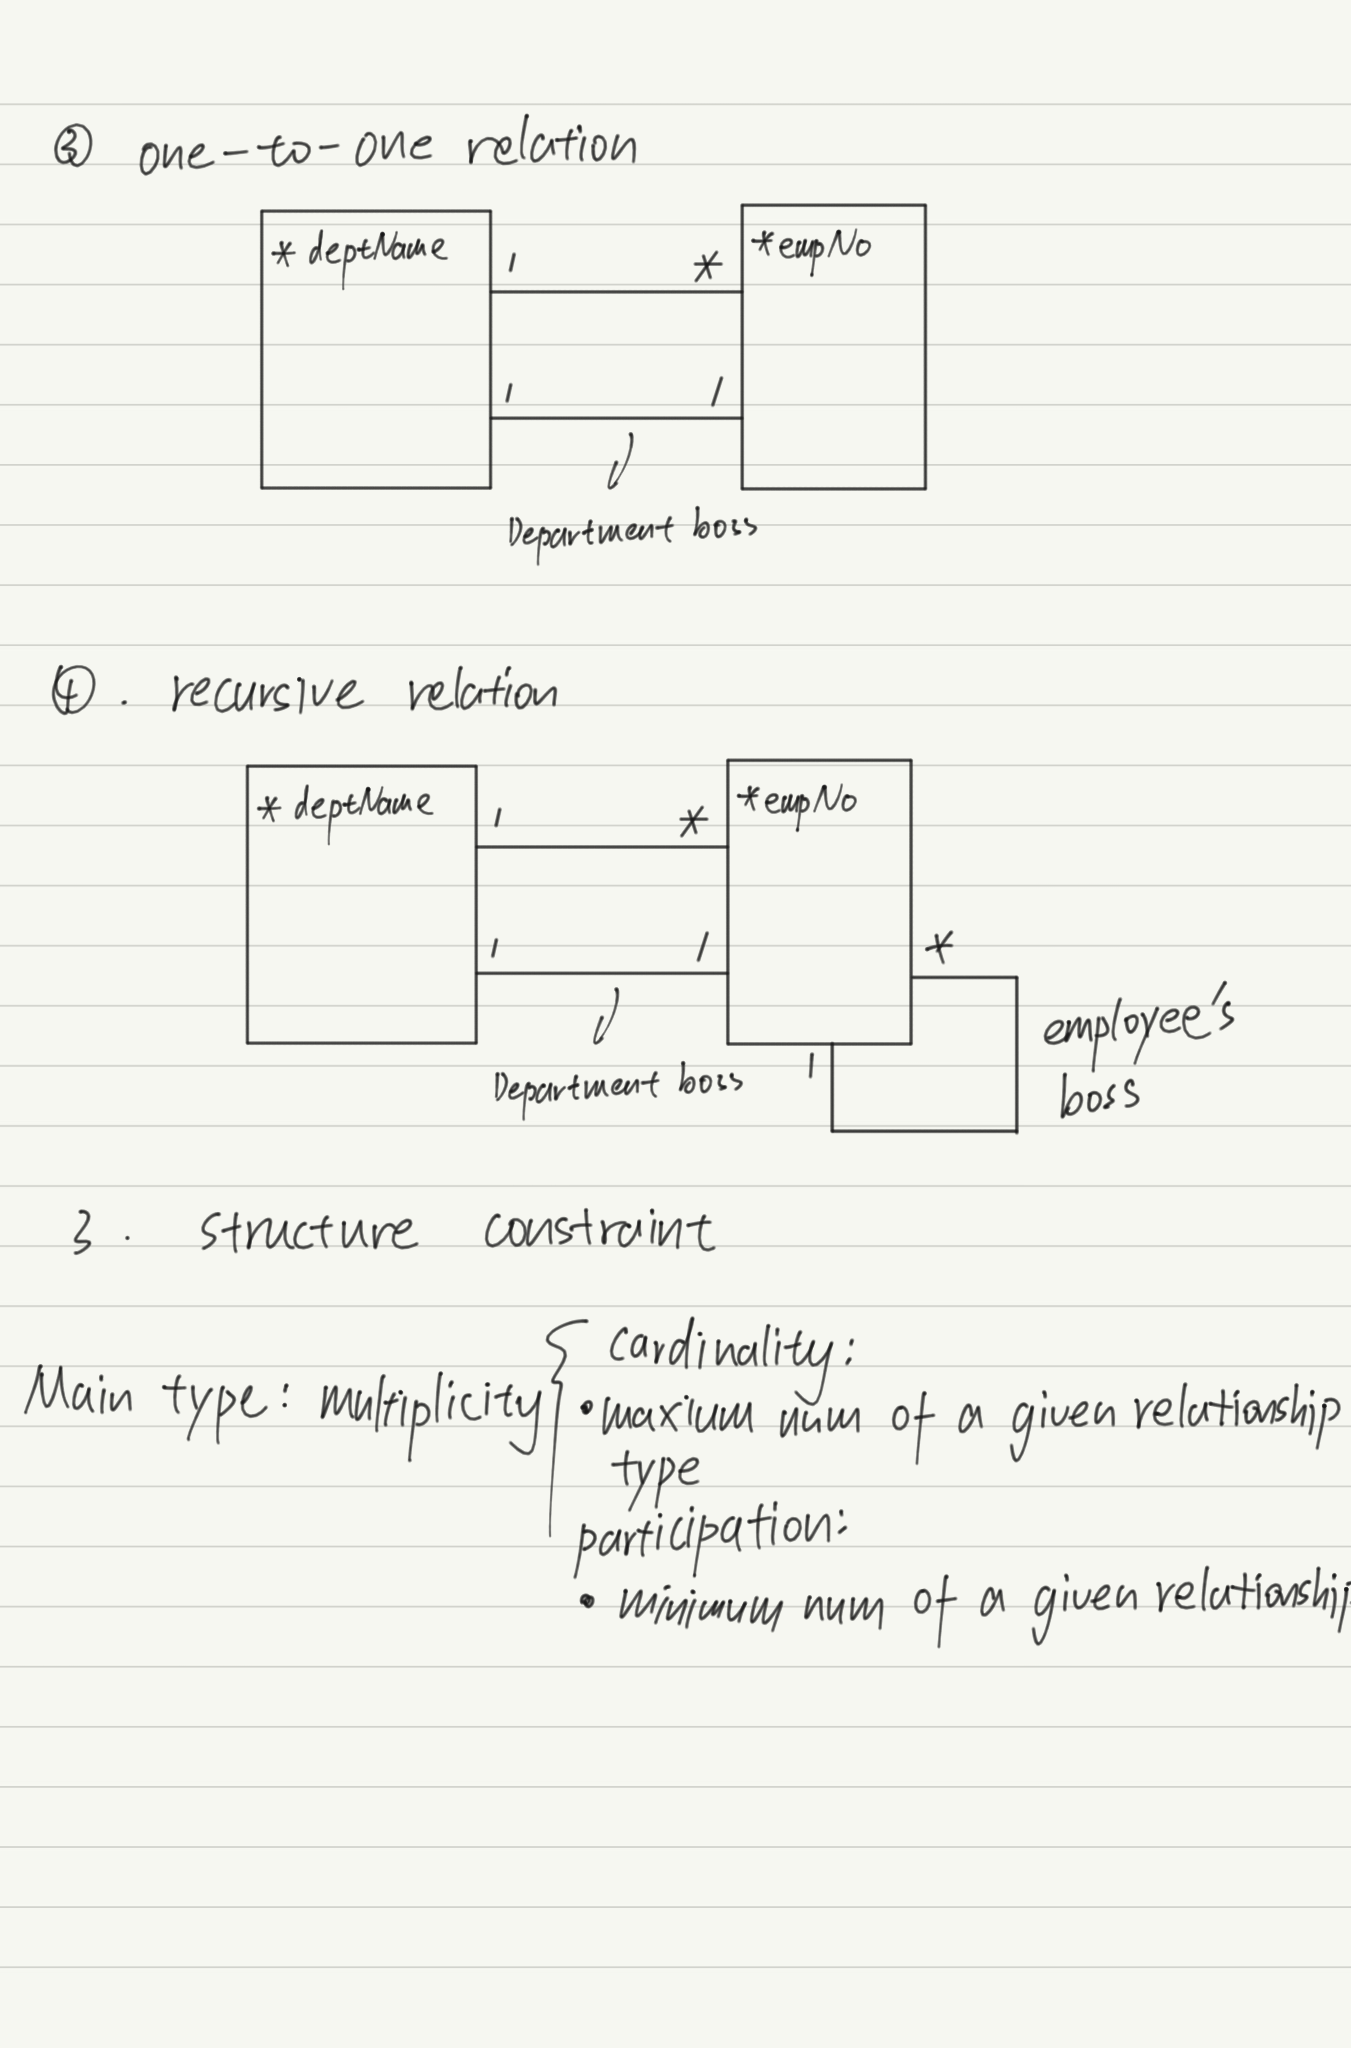 ③ one-to-one relation
* deptName
1 *
* empNo
1 1
Department boss
④. recursive relation
* deptName
1 *
* empNo
1 1
*
employee's
boss
Department boss
1
3. structure constraint
Main type: multiplicity
cardinality:
• maxium num of a given relationship
type
participation:
• minimum num of a given relationship